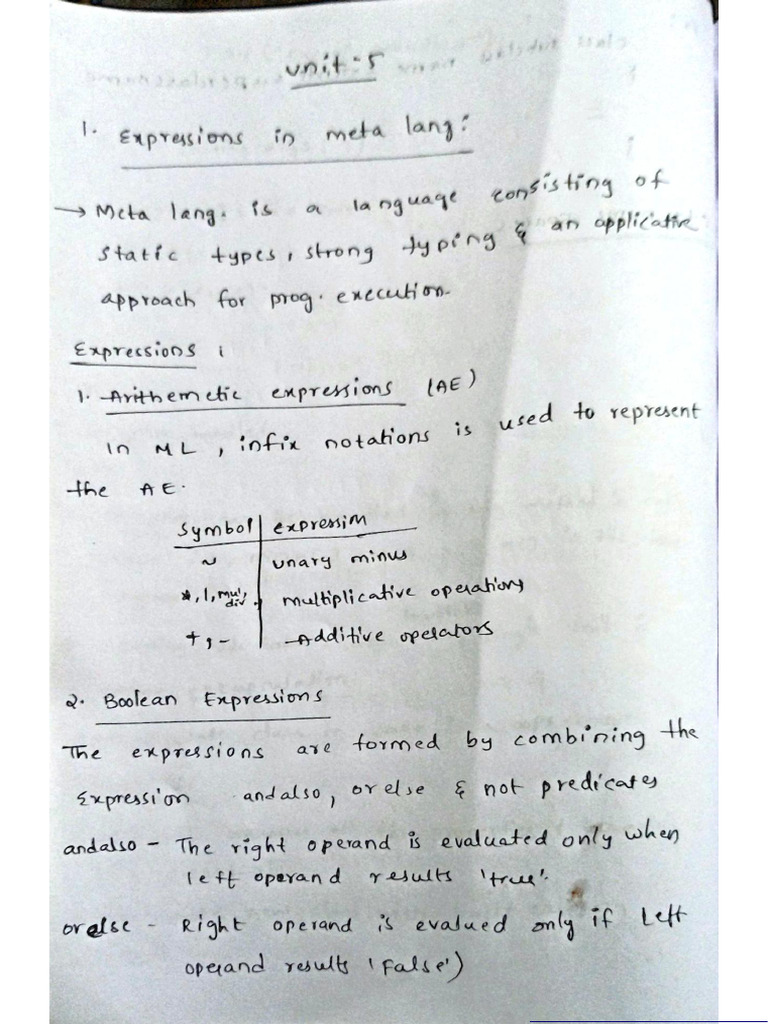 Unit:5
1. Expressions in meta lang:
→ Meta lang. is a language consisting of
static types, strong typing & an applicative
approach for prog. execution.
Expressions :
1. Arithemetic expressions (AE)
In ML, infix notations is used to represent
the AE.
Symbol | expression
~ unary minus
*, /, mul, div. multiplicative operations
+, - Additive operators
2. Boolean Expressions
The expressions are formed by combining the
Expression andalso, orelse & not predicates
andalso - The right operand is evaluated only when
left operand results 'true'.
orelse - Right operand is evalued only if Left
operand results 'False')